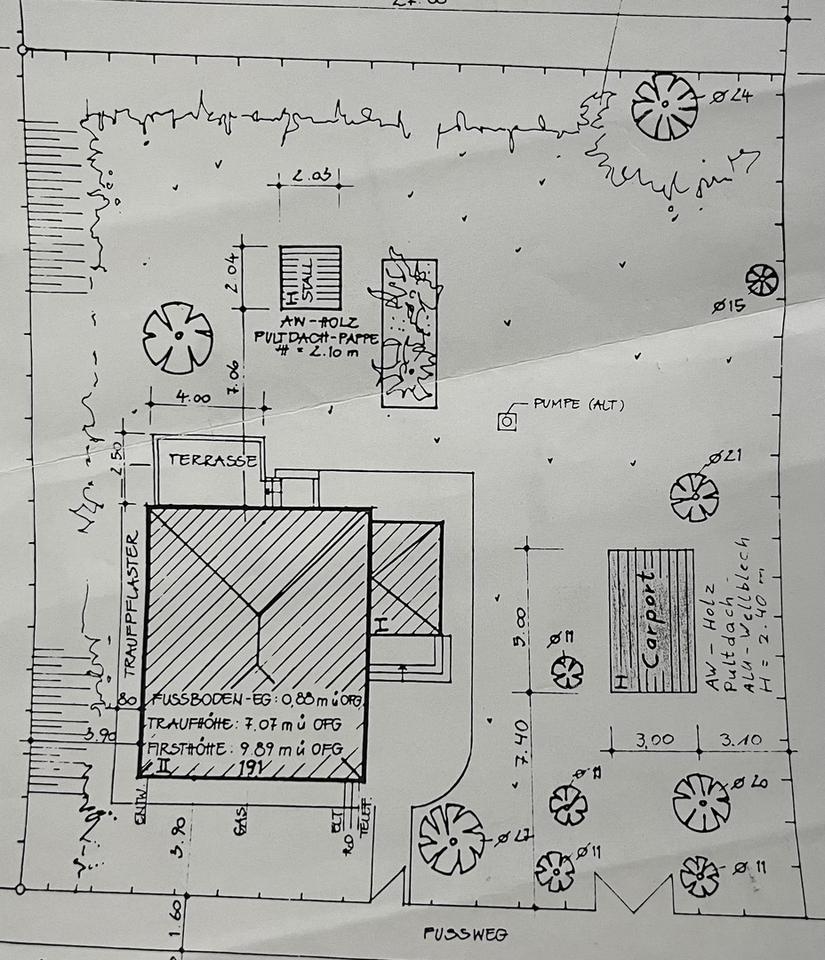 Ø24
2.03
2.04
STALL
H
AW-HOLZ
PULTDACH-PAPPE
H = 2.10 m
Ø15
7.06
4.00
PUMPE (ALT)
2.50
TERRASSE
Ø21
TRAUFPFLASTER
I
5.00
Carport
H
AW-Holz
Pultdach-
ALU-Wellblech
H = 2.40 m
80
FUSSBODEN-EG: 0,88 m ü OFG
TRAUFHÖHE: 7.07 m ü OFG
FIRSTHÖHE: 9.89 m ü OFG
II
191
3.90
7.40
3,00
3.10
Ø20
ENTW.
GAS
ELT
TELEF.
3.90
Ø11
Ø11
1.60
FUSSWEG